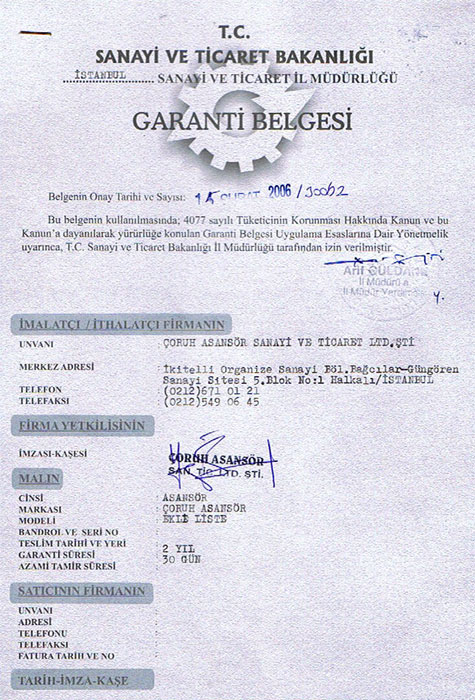 T.C.
SANAYİ VE TİCARET BAKANLIĞI
İSTANBUL SANAYİ VE TİCARET İL MÜDÜRLÜĞÜ
GARANTİ BELGESİ
Belgenin Onay Tarihi ve Sayısı: 15 ŞUBAT 2006 /
Bu belgenin kullanılmasında; 4077 sayılı Tüketicinin Korunması Hakkında Kanun ve bu
Kanun'a dayanılarak yürürlüğe konulan Garanti Belgesi Uygulama Esaslarına Dair Yönetmelik
uyarınca, T.C. Sanayi ve Ticaret Bakanlığı İl Müdürlüğü tarafından izin verilmiştir.
Arif
İl Müdürü a
İl Müdür
İMALATÇI / İTHALATÇI FİRMANIN
UNVANI : ÇORUH ASANSÖR SANAYİ VE TİCARET LTD.ŞTİ
MERKEZ ADRESİ : İkitelli Organize Sanayi Böl.Bağcılar-Güngören
Sanayi Sitesi 5.Blok No:1 Halkalı/İSTANBUL
TELEFON : (0212)671 01 21
TELEFAKSI : (0212)549 06 45
FİRMA YETKİLİSİNİN
İMZASI-KAŞESİ : ÇORUH ASANSÖR
SAN. TİC. LTD. ŞTİ.
MALIN
CİNSİ : ASANSÖR
MARKASI : ÇORUH ASANSÖR
MODELİ : EKLİ LİSTE
BANDROL VE SERİ NO :
TESLİM TARİHİ VE YERİ :
GARANTİ SÜRESİ : 2 YIL
AZAMİ TAMİR SÜRESİ : 30 GÜN
SATICININ FİRMANIN
UNVANI :
ADRESİ :
TELEFONU :
TELEFAKSI :
FATURA TARİH VE NO :
TARİH-İMZA-KAŞE